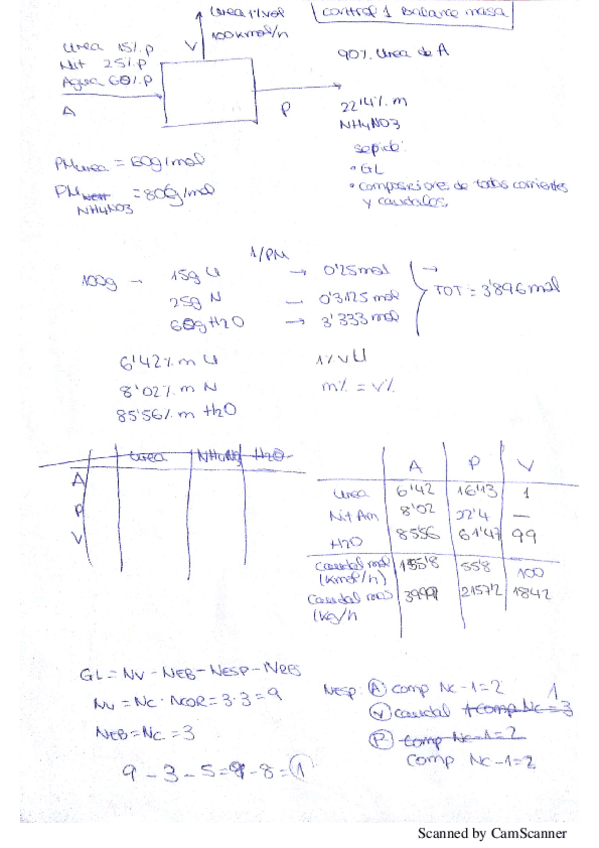 Urea 1% vol
control 1 Balance masa
100 kmol/h
Urea 15% p
Nit 25% p
Agua 60% p
V
90% Urea de A
A
P
22'4% m
NH4NO3
se pide:
• GL
• composiciones de todas corrientes y caudales.
PM urea = 60g/mol
PM NH4NO3 = 80g/mol
1/PM
100g → 15g U → 0'25mol
25g N — 0'3125 mol
60g H2O → 3'333mol
TOT = 3'896 mol
6'42% m U
1% v U
8'02% m N
m% = v%
85'56% m H2O
Urea NH4NO3 H2O
A
P
V
A P V
Urea 6'42 16'13 1
Nit Am 8'02 22'4 —
H2O 85'56 61'47 99
Caudal mol (kmol/h) 155'8 55'8 100
Caudal mas (kg/h 3999 2157'2 1842
GL = NV - NEB - NESP - NRES
NV = NC · NCOR = 3·3 = 9
NEB = NC = 3
9 - 3 - 5 = 9 - 8 = 1
NESP: A comp NC - 1 = 2
V caudal + comp NC = 3 1
P comp NC - 1 = 2
comp NC - 1 = 2
Scanned by CamScanner